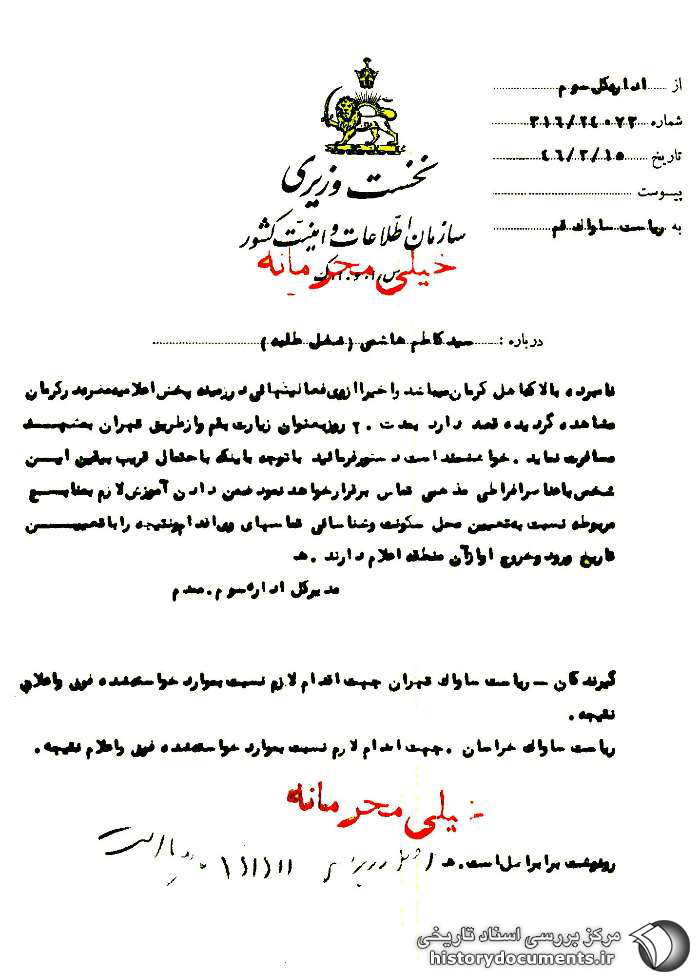 از اداره کل سوم
شماره ۳۱۶/۲۴۰۷۲
تاریخ ۴۶/۲/۱۵
پیوست
به ریاست ساواک قم
نخست وزیری
سازمان اطلاعات و امنیت کشور
س.ا.و.ا.ک
خیلی محرمانه
درباره : سید کاظم هاشمی (شغل طلبه)
نامبرده بالا که اهل کرمان میباشد و اخیرا از وی فعالیتهائی در زمینه پخش اعلامیه مضره در کرمان
مشاهده گردیده قصد دارد بمدت ۲۰ روز بعنوان زیارت بقم و از طریق تهران بمشهد
مسافرت نماید . خواهشمند است دستور فرمائید با توجه باینکه باحتمال قریب بیقین این
شخص با عناصر افراطی مذهبی تماس برقرار خواهد نمود ضمن دادن آموزش لازم بمنابع
مربوطه نسبت به تعیین محل سکونت و شناسائی تماسهای وی اقدام و نتیجه را با تعیین
تاریخ ورود و خروج او از آن منطقه اعلام دارند . هـ
مدیر کل اداره سوم . مقدم
گیرندگان – ریاست ساواک تهران جهت اقدام لازم نسبت بموارد خواسته شده فوق و اعلام
نتیجه .
ریاست ساواک خراسان . جهت اقدام لازم نسبت بموارد خواسته شده فوق و اعلام نتیجه .
خیلی محرمانه
رونوشت برابر اصل است . هـ
مرکز بررسی اسناد تاریخی
historydocuments.ir